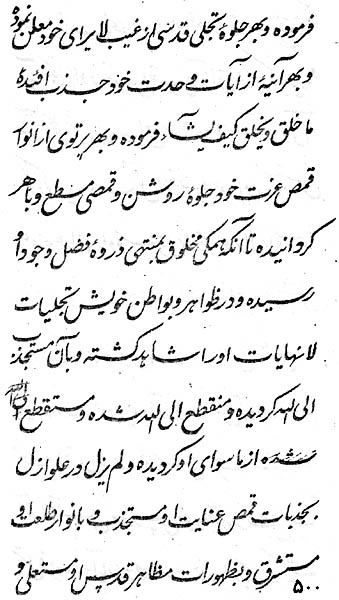 فرموده و بهر جلوهٔ تجلی قدسی از غیب لا یرای خود معلن نموده
و بهر آئیهٔ از آیات وحدت خود جذب افئدهٔ
ما خلق و یخلق کیف یشآء فرموده و بهر پرتوی از انوار
قمص عزت خود جلوهٔ روشن و قمصی مسطع و باهر
گردانیده تا آنکه همگی مخلوق بمنتهی ذروهٔ فضل وجود او
رسیده و در ظواهر و بواطن خویش تجلیات
لانهایات او را شاهد گشته و بآن مستجذب
الی الله گردیده و منقطع الی الله شده و مستقطع
شده از ماسوای او گردیده و لم یزل در علو ازل
بجذبات قمص عنایت او مستجذب و بانوار طلعت او
مستشرق و بظهورات مظاهر قدس او مستعلی و
۵۰۰